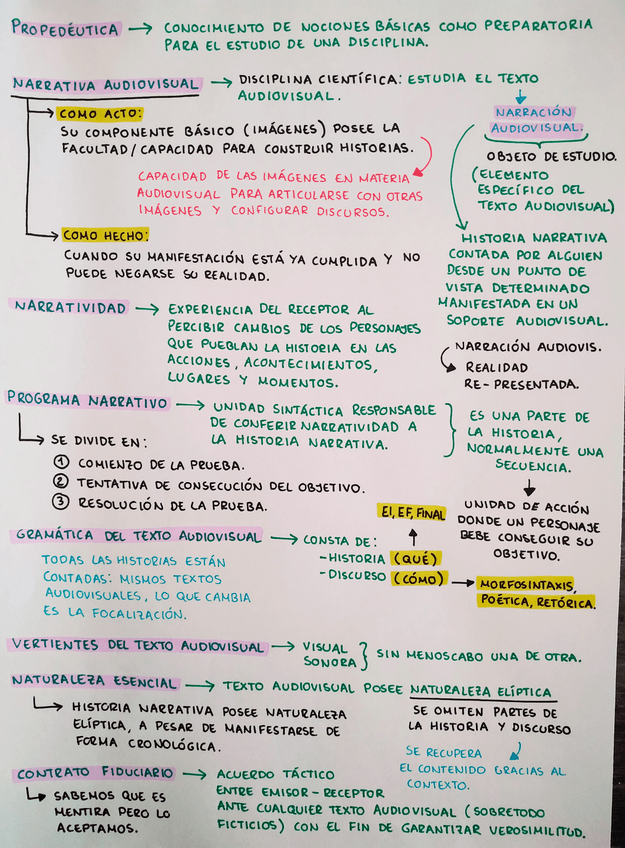 PROPEDÉUTICA → CONOCIMIENTO DE NOCIONES BÁSICAS COMO PREPARATORIA
PARA EL ESTUDIO DE UNA DISCIPLINA.
NARRATIVA AUDIOVISUAL → DISCIPLINA CIENTÍFICA: ESTUDIA EL TEXTO
AUDIOVISUAL.
COMO ACTO:
SU COMPONENTE BÁSICO (IMÁGENES) POSEE LA
FACULTAD/CAPACIDAD PARA CONSTRUIR HISTORIAS.
CAPACIDAD DE LAS IMÁGENES EN MATERIA
AUDIOVISUAL PARA ARTICULARSE CON OTRAS
IMÁGENES Y CONFIGURAR DISCURSOS.
COMO HECHO:
CUANDO SU MANIFESTACIÓN ESTÁ YA CUMPLIDA Y NO
PUEDE NEGARSE SU REALIDAD.
NARRACIÓN
AUDIOVISUAL.
OBJETO DE ESTUDIO.
(ELEMENTO
ESPECÍFICO DEL
TEXTO AUDIOVISUAL)
HISTORIA NARRATIVA
CONTADA POR ALGUIEN
DESDE UN PUNTO DE
VISTA DETERMINADO
MANIFESTADA EN UN
SOPORTE AUDIOVISUAL.
NARRACIÓN AUDIOVIS.
REALIDAD
RE-PRESENTADA.
NARRATIVIDAD → EXPERIENCIA DEL RECEPTOR AL
PERCIBIR CAMBIOS DE LOS PERSONAJES
QUE PUEBLAN LA HISTORIA EN LAS
ACCIONES, ACONTECIMIENTOS,
LUGARES Y MOMENTOS.
PROGRAMA NARRATIVO → UNIDAD SINTÁCTICA RESPONSABLE
DE CONFERIR NARRATIVIDAD A
LA HISTORIA NARRATIVA.
ES UNA PARTE DE
LA HISTORIA,
NORMALMENTE UNA
SECUENCIA.
UNIDAD DE ACCIÓN
DONDE UN PERSONAJE
DEBE CONSEGUIR SU
OBJETIVO.
SE DIVIDE EN:
① COMIENZO DE LA PRUEBA.
② TENTATIVA DE CONSECUCIÓN DEL OBJETIVO.
③ RESOLUCIÓN DE LA PRUEBA.
GRAMÁTICA DEL TEXTO AUDIOVISUAL → CONSTA DE:
EI, EF, FINAL
- HISTORIA (QUÉ)
- DISCURSO (CÓMO) → MORFOSINTAXIS,
POÉTICA, RETÓRICA.
TODAS LAS HISTORIAS ESTÁN
CONTADAS: MISMOS TEXTOS
AUDIOVISUALES, LO QUE CAMBIA
ES LA FOCALIZACIÓN.
VERTIENTES DEL TEXTO AUDIOVISUAL → VISUAL
SONORA } SIN MENOSCABO UNA DE OTRA.
NATURALEZA ESENCIAL → TEXTO AUDIOVISUAL POSEE NATURALEZA ELÍPTICA
HISTORIA NARRATIVA POSEE NATURALEZA
ELÍPTICA, A PESAR DE MANIFESTARSE DE
FORMA CRONOLÓGICA.
SE OMITEN PARTES DE
LA HISTORIA Y DISCURSO
SE RECUPERA
EL CONTENIDO GRACIAS AL
CONTEXTO.
CONTRATO FIDUCIARIO → ACUERDO TÁCTICO
ENTRE EMISOR-RECEPTOR
ANTE CUALQUIER TEXTO AUDIOVISUAL (SOBRETODO
FICTICIOS) CON EL FIN DE GARANTIZAR VEROSIMILITUD.
SABEMOS QUE ES
MENTIRA PERO LO
ACEPTAMOS.